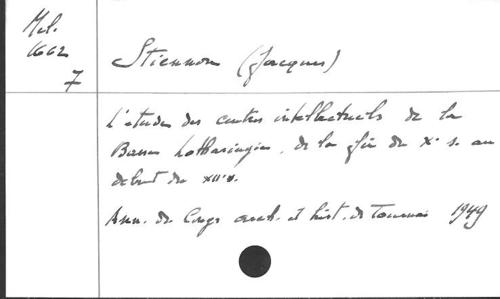 Mel.
1662
7
Stiennon (Jacques)
L'étude des centres intellectuels de la
Basse Lotharingie, de la fin du Xe s. au
début du XIIe s.
Ann. du Congr. arch. et hist. de Tournai 1949